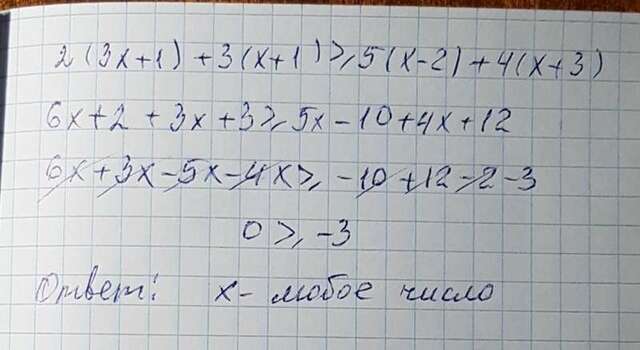 2(3x+1)+3(x+1)≥5(x-2)+4(x+3)
6x+2+3x+3≥5x-10+4x+12
6x+3x-5x-4x≥-10+12-2-3
0≥-3
Ответ: x- любое число